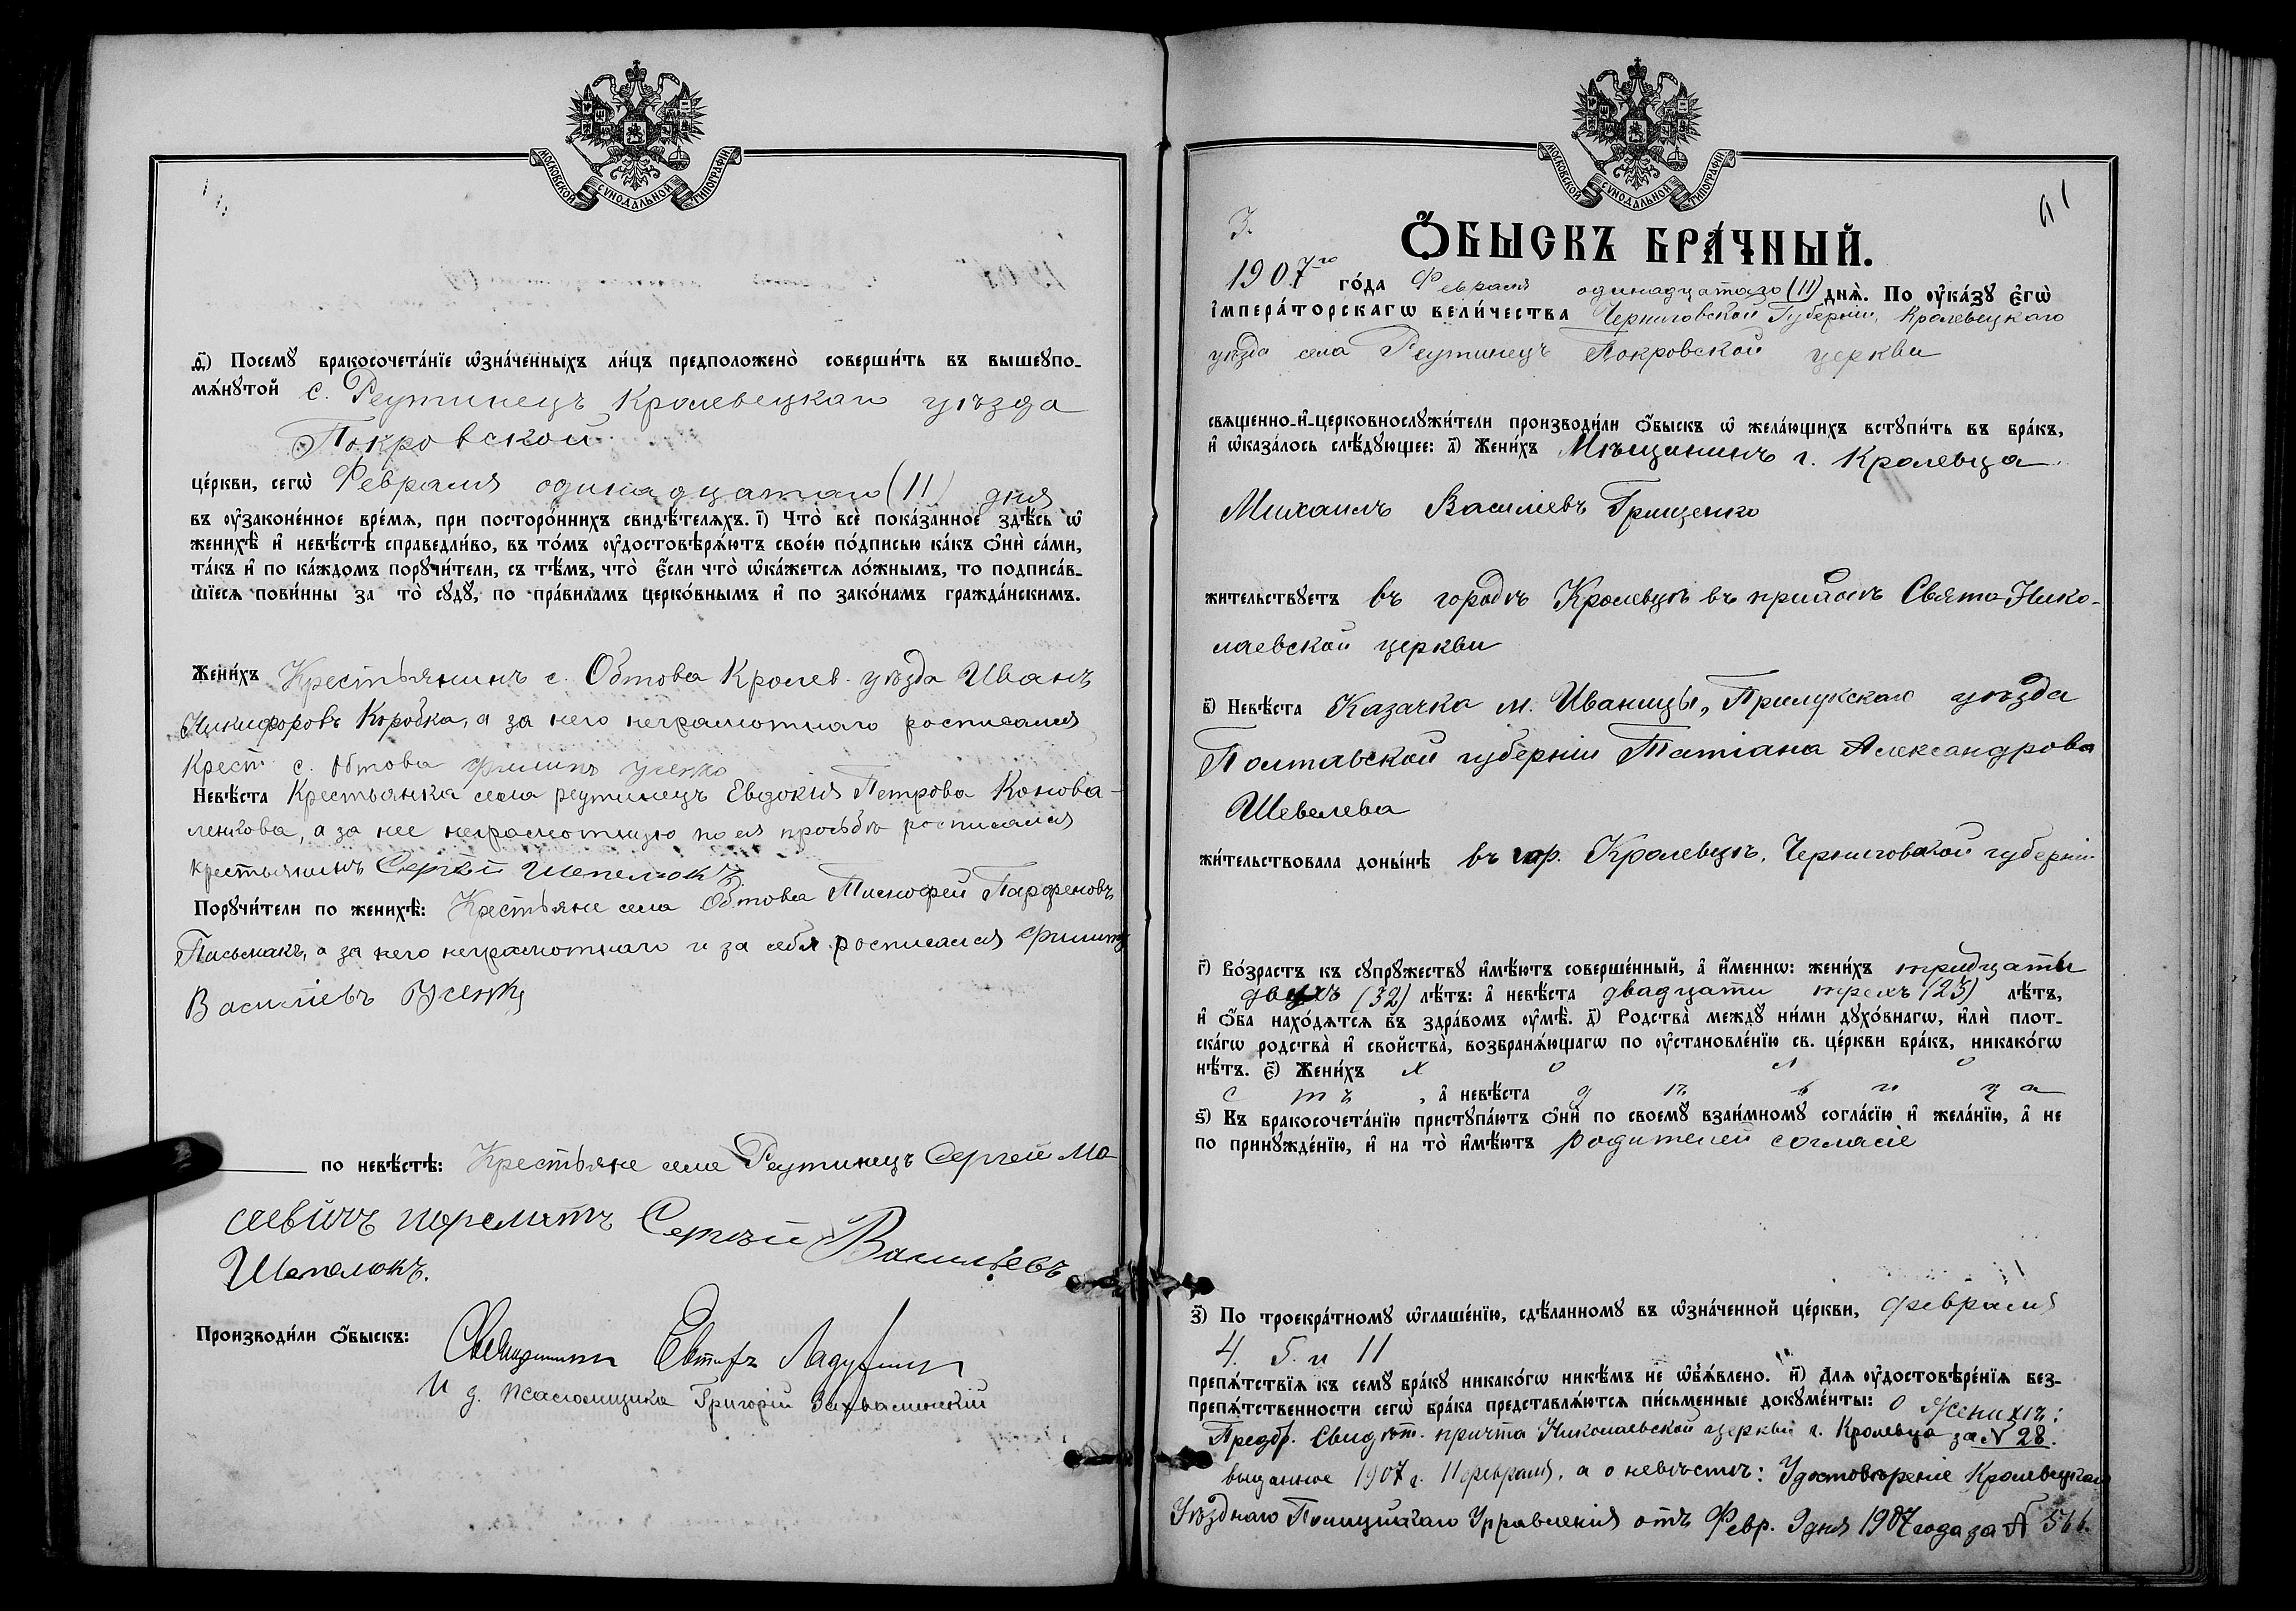 МОСКОВСКОЙ СѴНОДАЛЬНОЙ ТИПОГРАФІИ
д҃і) Посемꙋ бракосочета́нїе ѡ҆зна́ченныхъ ли́цъ предположено̀ соверши́ть въ вышеꙋпо-
мѧ́нꙋтой с. Реутинецъ Кролевецкаго уѣзда
Покровской
це́ркви, сегѡ̀ Февраля одинадцатаго (11) дня
въ ᲂу҆законе́нное вре́мѧ, при посторо́ннихъ свидѣ́телѧхъ. і҃) Что̀ всѐ пока́занное здѣ́сь ѡ҆
женихѣ̀ и҆ невѣ́стѣ справедли́во, въ то́мъ ᲂу҆достовѣрѧ́ютъ свое́ю по́дписью ка́къ ѻ҆нѝ са́ми,
та́къ и҆ по ка́ждомъ порꙋчи́тели, съ тѣ́мъ, что̀ є҆́сли что̀ ѡ҆ка́жетсѧ ло́жнымъ, то подписа́в-
шїесѧ пови́нны за то̀ сꙋдꙋ̀, по пра́виламъ церко́внымъ и҆ по зако́намъ гражда́нскимъ.
Жени́хъ Крестьянинъ с. Обтова Кролев. уѣзда Иванъ
Никифоровъ Коробка, а за него неграмотнаго росписался
Крест. с. Обтова Филипъ Усенко
Невѣ́ста Крестьянка села Реутинецъ Евдокія Петрова Конова-
ленкова, а за нее неграмотную по ея просьбѣ росписался
крестьянинъ Сергѣй Шепелюкъ
Порꙋчи́тели по женихѣ̀: Крестьяне села Обтова Тимофей Парфеновъ
Письмакъ, а за него неграмотнаго и за себя росписался Филипъ
Василіевъ Усенко
по невѣ́стѣ: Крестьяне села Реутинецъ Сергей Мо
сеевичъ Шереметъ Сергѣй Васильевъ
Шепелюкъ.
Производи́ли ѻ҆́быскъ: Священникъ
И д. псаломщика Григорій
МОСКОВСКОЙ СѴНОДАЛЬНОЙ ТИПОГРАФІИ
3.
Ѻ҆́БЫСКЪ БРА́ЧНЫЙ.
1907го го́да Февраля одинадцатаго (11) днѧ̀. По ᲂу҆ка́зꙋ є҆гѡ̀
і҆мпера́торскагѡ вели́чества Черниговской Губерніи, Кролевецкаго
уѣзда села Реутинецъ Покровской церкви
свѧщенно-и҆-церковнослꙋжи́тели производи́ли ѻ҆́быскъ ѡ҆ жела́ющихъ встꙋпи́ть въ бра́къ,
и҆ ѡ҆каза́лось слѣ́дꙋющее: а҃) Жени́хъ Мѣщанинъ г. Кролевца
Михаилъ Василіевъ Грищенко
жительствꙋетъ въ городѣ Кролевцѣ въ приходѣ Свято-Нико-
лаевской церкви
в҃) Невѣ́ста Казачка м. Иваницы, Прилукскаго уѣзда
Полтавской губерніи Татіана Александрова
Шевелева
жи́тельствовала доны́нѣ въ гор. Кролевцѣ, Черниговской губерніи
г҃) Во́зрастъ къ сꙋпрꙋжествꙋ и҆мѣ́ютъ соверше́нный, а҆ и҆́меннѡ: жени́хъ тридцати
двухъ (32) лѣ́тъ: а҆ невѣ́ста двадцати трехъ (23) лѣ́тъ,
и҆ ѻ҆́ба нахо́дѧтсѧ въ здра́вомъ ᲂу҆мѣ̀. д҃) Родства̀ междꙋ ни́ми дꙋхо́внагѡ, и҆лѝ плот-
ска́гѡ родства̀ и҆ свойства̀, возбранѧ́ющагѡ по ᲂу҆становле́нїю св. це́ркви бра́къ, никако́гѡ
нѣ́тъ. є҃) Жени́хъ х о л о
с т ъ, а҆ невѣ́ста д ѣ в и ц а
ѕ҃) Къ бракосочета́нїю пристꙋпа́ютъ ѻ҆нѝ по своемꙋ̀ взаи́мномꙋ согла́сїю и҆ жела́нїю, а҆ не
по принꙋжде́нїю, и҆ на то̀ и҆мѣ́ютъ родителей согласіе
з҃) По троекра́тномꙋ ѡ҆глаше́нїю, сдѣ́ланномꙋ въ ѡ҆зна́ченной це́ркви, февраля
4. 5. и 11
препѧ́тствїѧ къ семꙋ̀ бра́кꙋ никако́гѡ никѣ́мъ не ѡ҆б̾ѧ́влено. и҃) Длѧ ᲂу҆достовѣре́нїѧ без-
препѧ́тственности сегѡ̀ бра́ка представлѧ́ютсѧ пи́сьменные докꙋме́нты: о женихѣ:
Предбр. Свидѣт. причта Николаевской церкви г. Кролевца за № 28.
выданное 1907 г. 11 февраля, а о невѣстѣ: Удостовѣреніе Кролевецкаго
Уѣзднаго Полицейскаго Управленія отъ Февр. 9 дня 1907 года за №